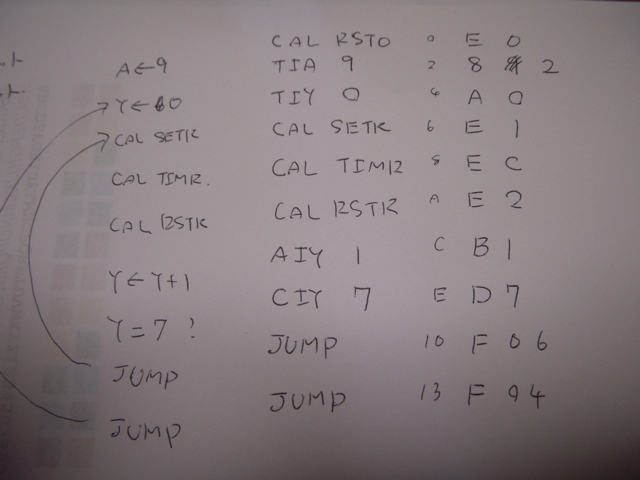 CAL RST0 0 E 0
A←9 TIA 9 2 8 2
Y←0 TIY 0 4 A 0
CAL SETR CAL SETR 6 E 1
CAL TIMR. CAL TIMR 8 E C
CAL RSTR CAL RSTR A E 2
AIY 1 C B 1
Y←Y+1 CIY 7 E D 7
Y=7 ? JUMP 10 F 0 6
JUMP JUMP 13 F 0 4
JUMP